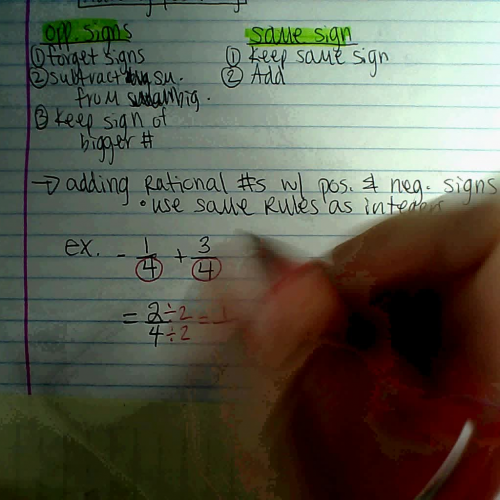 opp. signs
① forget signs
② subtract su.
from big.
③ keep sign of
bigger #
same sign
① keep same sign
② Add
→ adding Rational #s w/ pos. & neg. signs
• use same Rules as
ex. - 1/4 + 3/4
= 2÷2/4÷2 = 1